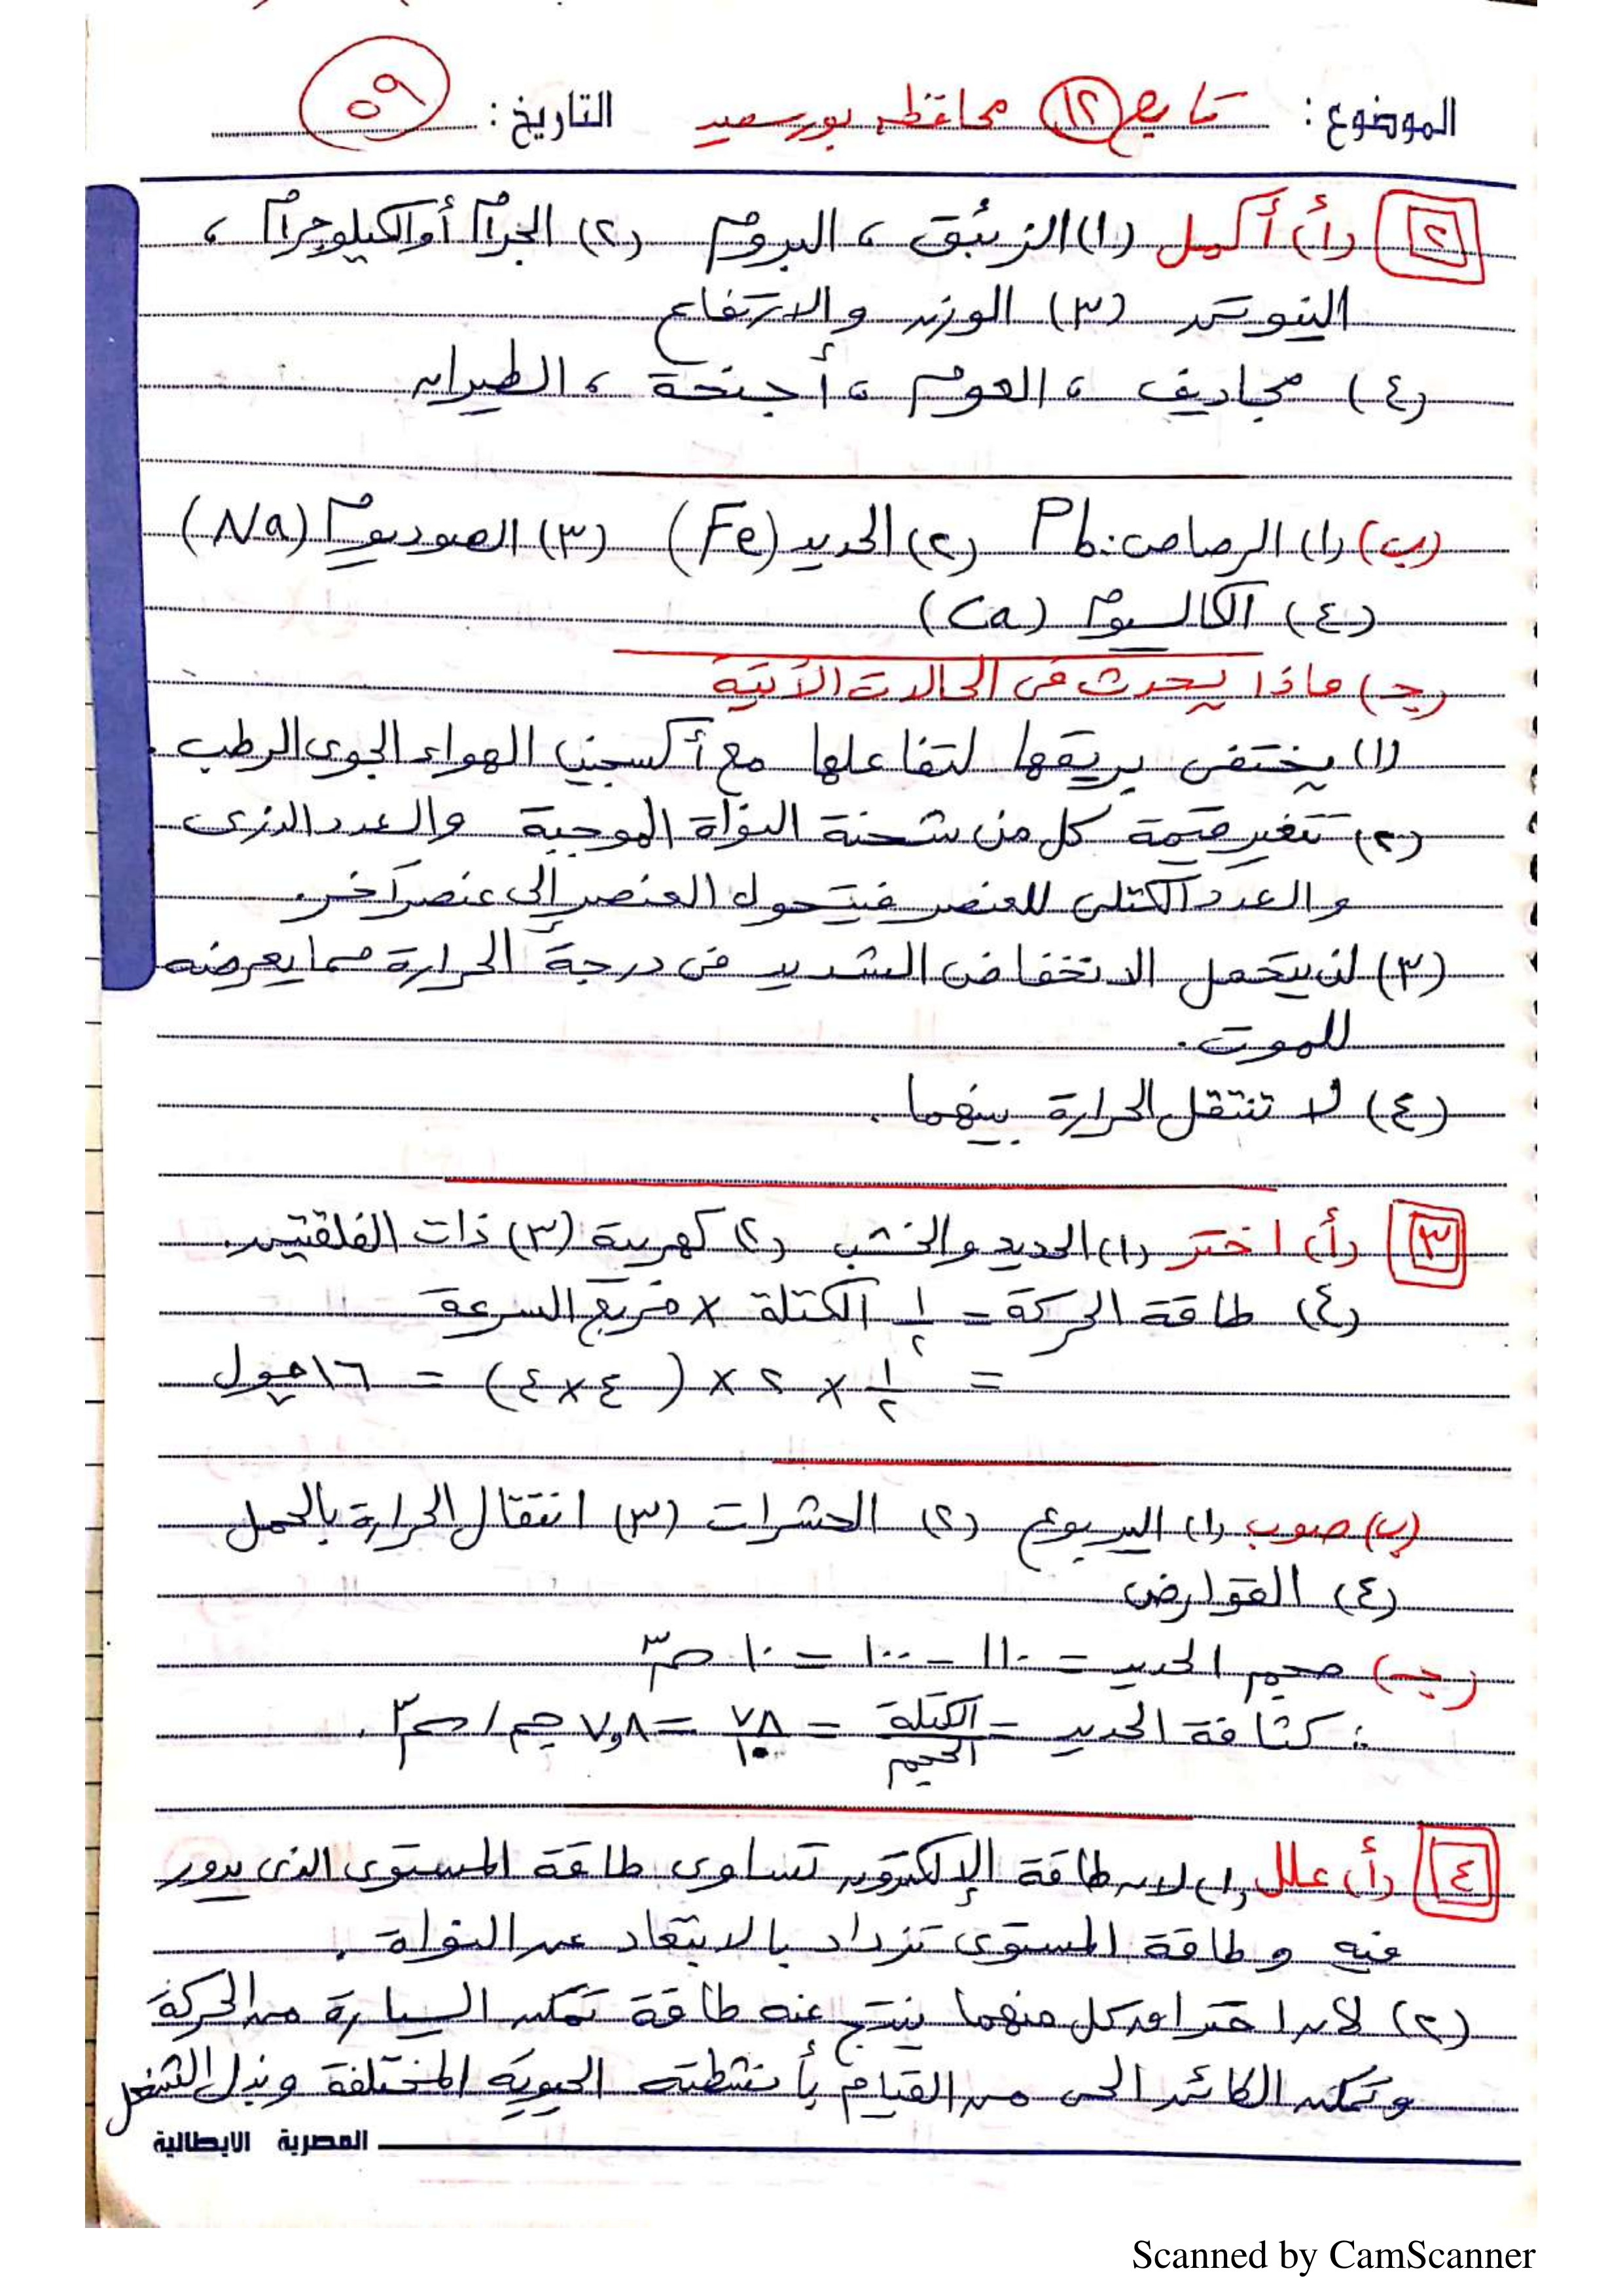 الموضوع: تابع (١٢) محافظة بورسعيد التاريخ: ٥٩
٢ (أ) أكمل (١) الزئبق ، البروم (٢) الجرام أو الكيلوجرام ،
النيوتن (٣) الوزن والارتفاع
(٤) مجاديف ، العوم ، أجنحة ، الطيران
(ب) (١) الرصاص: Pb (٢) الحديد (Fe) (٣) الصوديوم (Na)
(٤) الكالسيوم (Ca)
(جـ) ماذا يحدث فى الحالات الآتية
(١) يختفى بريقها لتفاعلها مع أكسجين الهواء الجوى الرطب.
(٢) تتغير قيمة كل من شحنة النواة الموجبة والعدد الذرى
والعدد الكتلى للعنصر فيتحول العنصر إلى عنصر آخر.
(٣) لن يتحمل الانخفاض الشديد فى درجة الحرارة مما يعرضه
للموت.
(٤) لا تنتقل الحرارة بينهما.
٣ (أ) اختر (١) الحديد والخشب (٢) كهربية (٣) ذات الفلقتين.
(٤) طاقة الحركة = ١/٢ الكتلة × مربع السرعة
= ١/٢ × ٢ × (٤×٤) = ١٦ جول
(ب) صوب (١) اليربوع (٢) الحشرات (٣) انتقال الحرارة بالحمل
(٤) القوارض
(جـ) حجم الحديد = ١١٠ - ١٠٠ = ١٠ سم٣
∴ كثافة الحديد = الكتلة/الحجم = ٧٨/١٠ = ٧,٨ جم/سم٣.
٤ (أ) علل (١) لان طاقة الإلكترون تساوى طاقة المستوى الذى يدور
فيه وطاقة المستوى تزداد بالابتعاد عن النواة.
(٢) لأن احتراق كل منهما ينتج عنه طاقة تمكن السيارة من الحركة
وتمكن الكائن الحى من القيام بأنشطته الحيوية المختلفة وبذل الشغل
المصرية الايطالية
Scanned by CamScanner